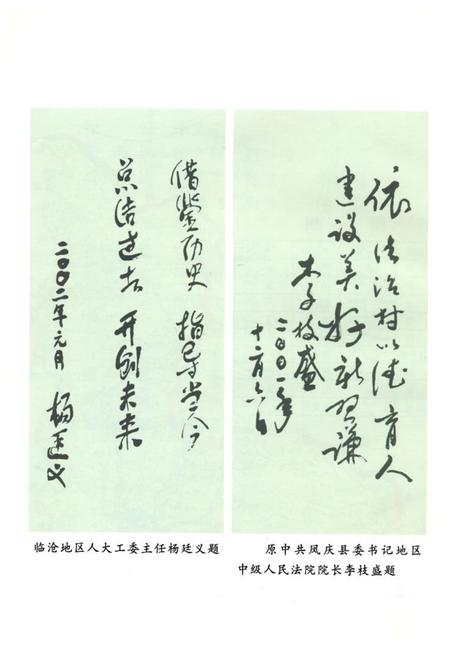 借鉴历史 指导当今
总结过去 开创未来
二〇〇二年元月 杨廷义
临沧地区人大工委主任杨廷义题
依法治村以德育人
建设美好新习谦
李枝盛
二〇〇一年
十二月六日
原中共凤庆县委书记地区
中级人民法院院长李枝盛题